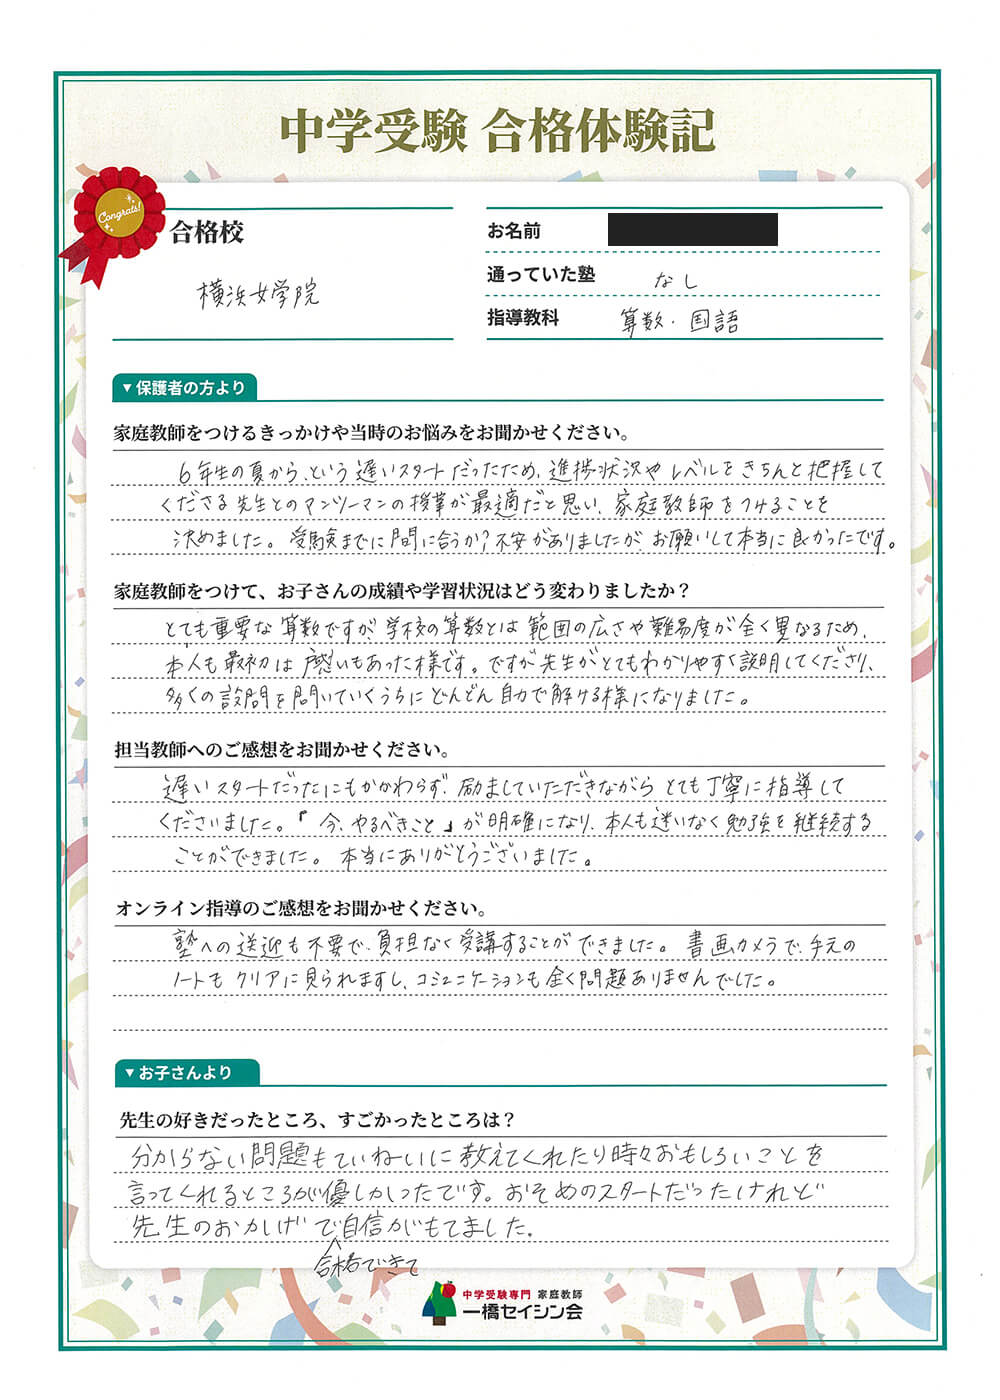 中学受験 合格体験記
Congrats!
合格校
横浜女学院
お名前
通っていた塾 なし
指導教科 算数・国語
▼保護者の方より
家庭教師をつけるきっかけや当時のお悩みをお聞かせください。
6年生の夏から、という遅いスタートだったため、進捗状況やレベルをきちんと把握して
くださる先生とのマンツーマンの授業が最適だと思い、家庭教師をつけることを
決めました。受験までに間に合うか?不安がありましたが、お願いして本当に良かったです。
家庭教師をつけて、お子さんの成績や学習状況はどう変わりましたか?
とても重要な算数ですが学校の算数とは範囲の広さや難易度が全く異なるため、
本人も最初は戸惑いもあった様です。ですが先生がとてもわかりやすく説明してくださり、
多くの設問を問いていくうちにどんどん自力で解ける様になりました。
担当教師へのご感想をお聞かせください。
遅いスタートだったにもかかわらず、励ましていただきながらとても丁寧に指導して
くださいました。『今、やるべきこと』が明確になり、本人も迷いなく勉強を継続する
ことができました。本当にありがとうございました。
オンライン指導のご感想をお聞かせください。
塾への送迎も不要で、負担なく受講することができました。書画カメラで、手元の
ノートもクリアに見られますし、コミュニケーションも全く問題ありませんでした。
▼お子さんより
先生の好きだったところ、すごかったところは?
分からない問題もていねいに教えてくれたり時々おもしろいことを
言ってくれるところが優しかったです。おそめのスタートだったけれど
先生のおかげで自信がもてました。
合格できて
中学受験専門 家庭教師
一橋セイシン会